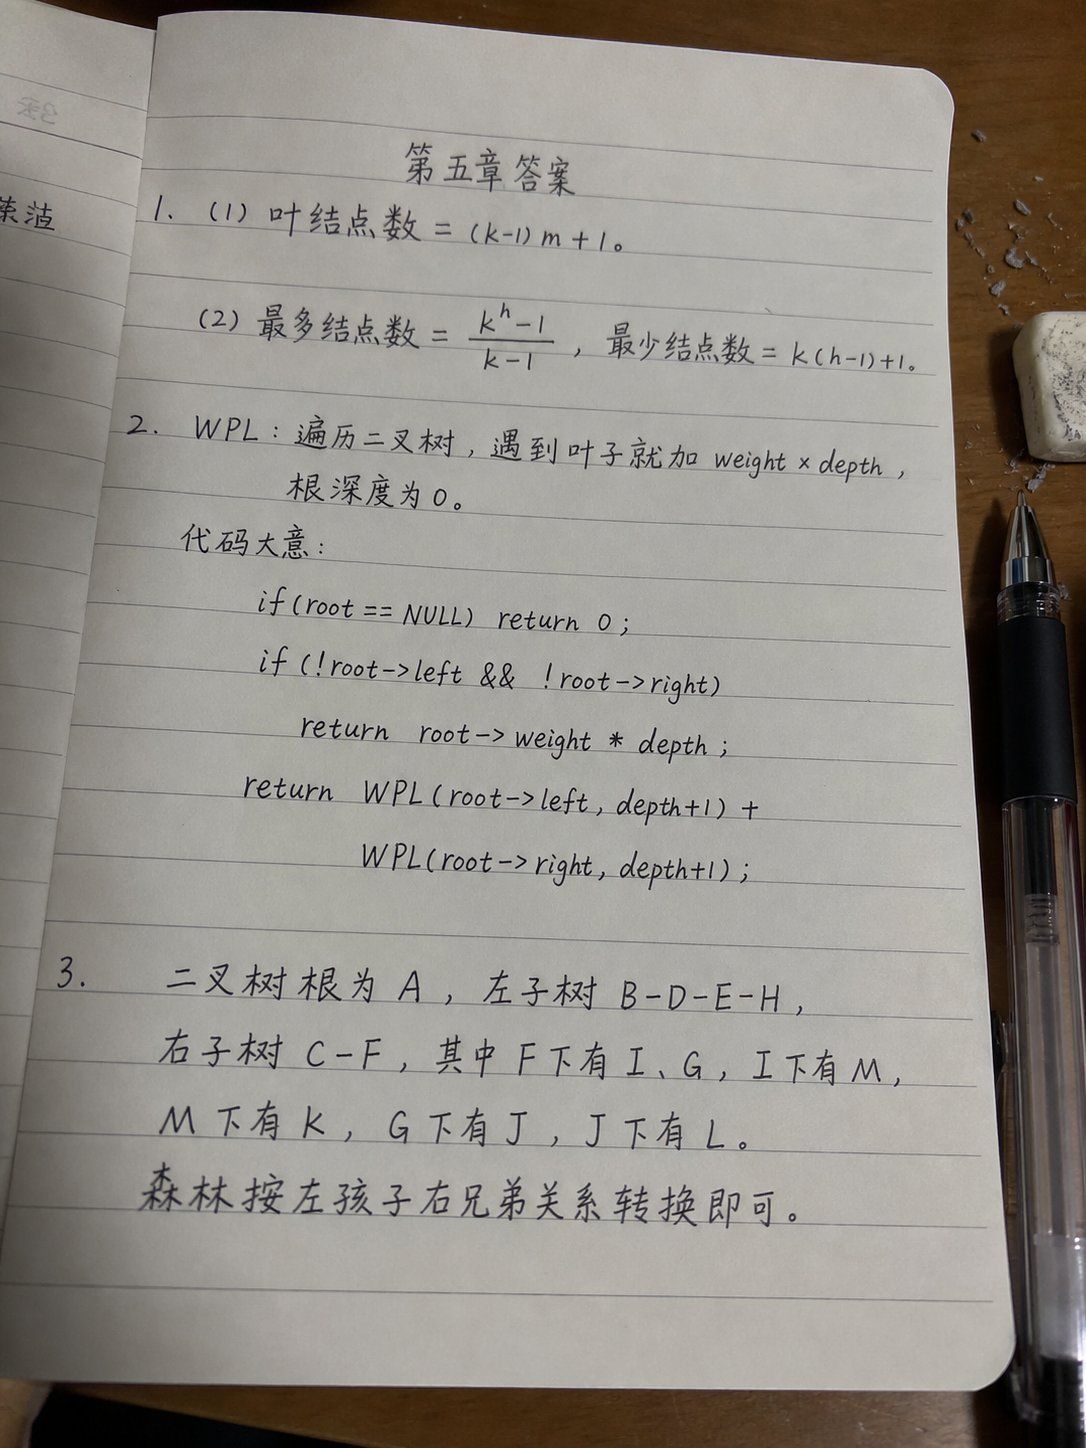 第五章答案
1. (1) 叶结点数 = (k-1)m+1。
(2) 最多结点数 = \frac{k^h-1}{k-1}, 最少结点数 = k(h-1)+1。
2. WPL: 遍历二叉树, 遇到叶子就加 weight × depth,
根深度为0。
代码大意:
if(root == NULL) return 0;
if (!root->left && !root->right)
return root->weight * depth;
return WPL(root->left, depth+1) +
WPL(root->right, depth+1);
3. 二叉树根为 A, 左子树 B-D-E-H,
右子树 C-F, 其中 F下有 I、G, I下有M,
M下有K, G下有J, J下有L。
森林按左孩子右兄弟关系转换即可。